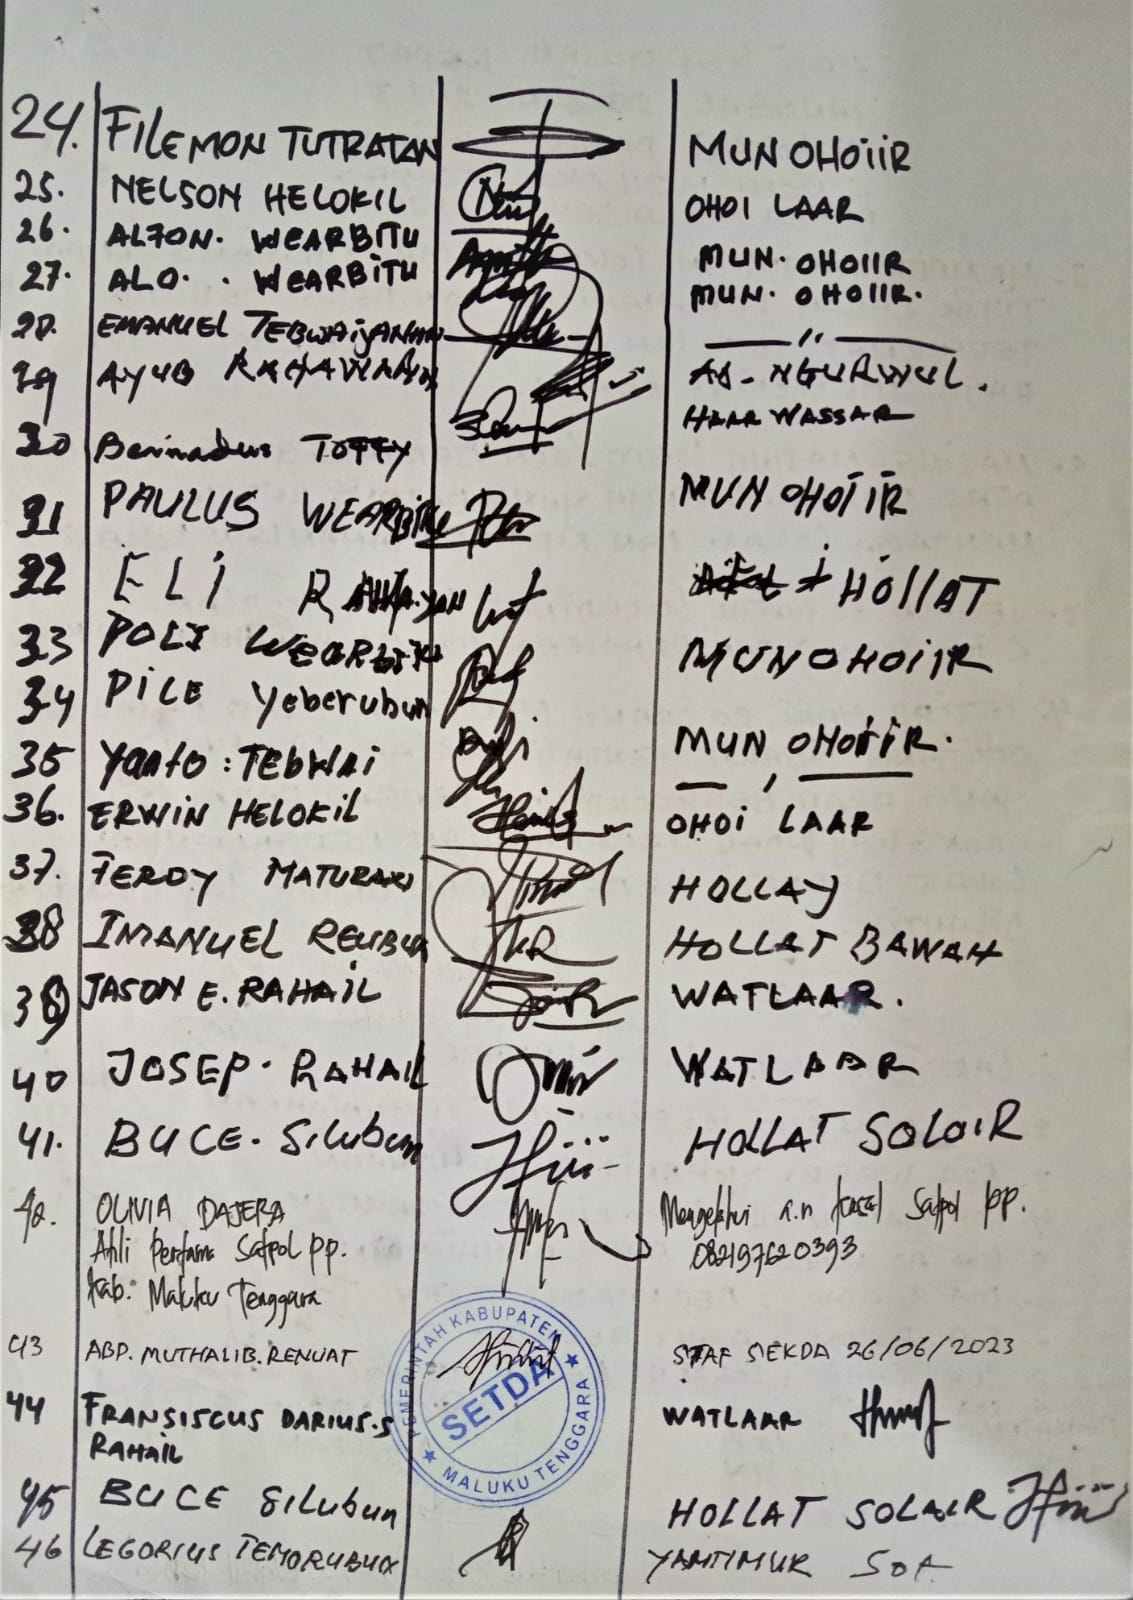 24. FILEMON TUTRATAN MUN OHOiiR
25. NELSON HELOKIL OHOI LAAR
26. ALFON. WEARBITU MUN. OHOIIR
27. ALO. . WEARBITU MUN. OHOIIR.
28. EMANUEL TEBWAIYANAN — " —
29 AYUB RAHAWARIN AD-NGURWUL.
30 Bernadus TOFFY HAAR WASSAR
31 PAULUS WEARBITU MUN OHOIIR
32 ELI RAHAYAN HOLLAT
33 POLI WEARBITU MUN OHOIIR
34 PILE Yeberubun MUN OHOIIR.
35 Yanto : TEBWAI — ' —
36. ERWIN HELOKIL OHOI LAAR
37. FERDY MATURAN HOLLAY
38 IMANUEL REUBUN HOLLAT BAWAH
39 JASON E. RAHAIL WATLAAR.
40 JOSEP. RAHAIL WATLAAR
41. BUCE. Silubun HOLLAT SOLAIR
42. OLIVIA DAJERA Mengetahui a.n Kasat Satpol pp.
Ahli Pertama Satpol pp. 082197620393
Kab. Maluku Tenggara
PEMERINTAH KABUPATEN
43 ABD. MUTHALIB. RENUAT STAF SEKDA 26/06/2023
SETDA
44 FRANSISCUS DARIUS.S WATLAAR
RAHAIL
MALUKU TENGGARA
45 BUCE Silubun HOLLAT SOLAIR
46 LEGORIUS TEMORUBUN YAMTIMUR